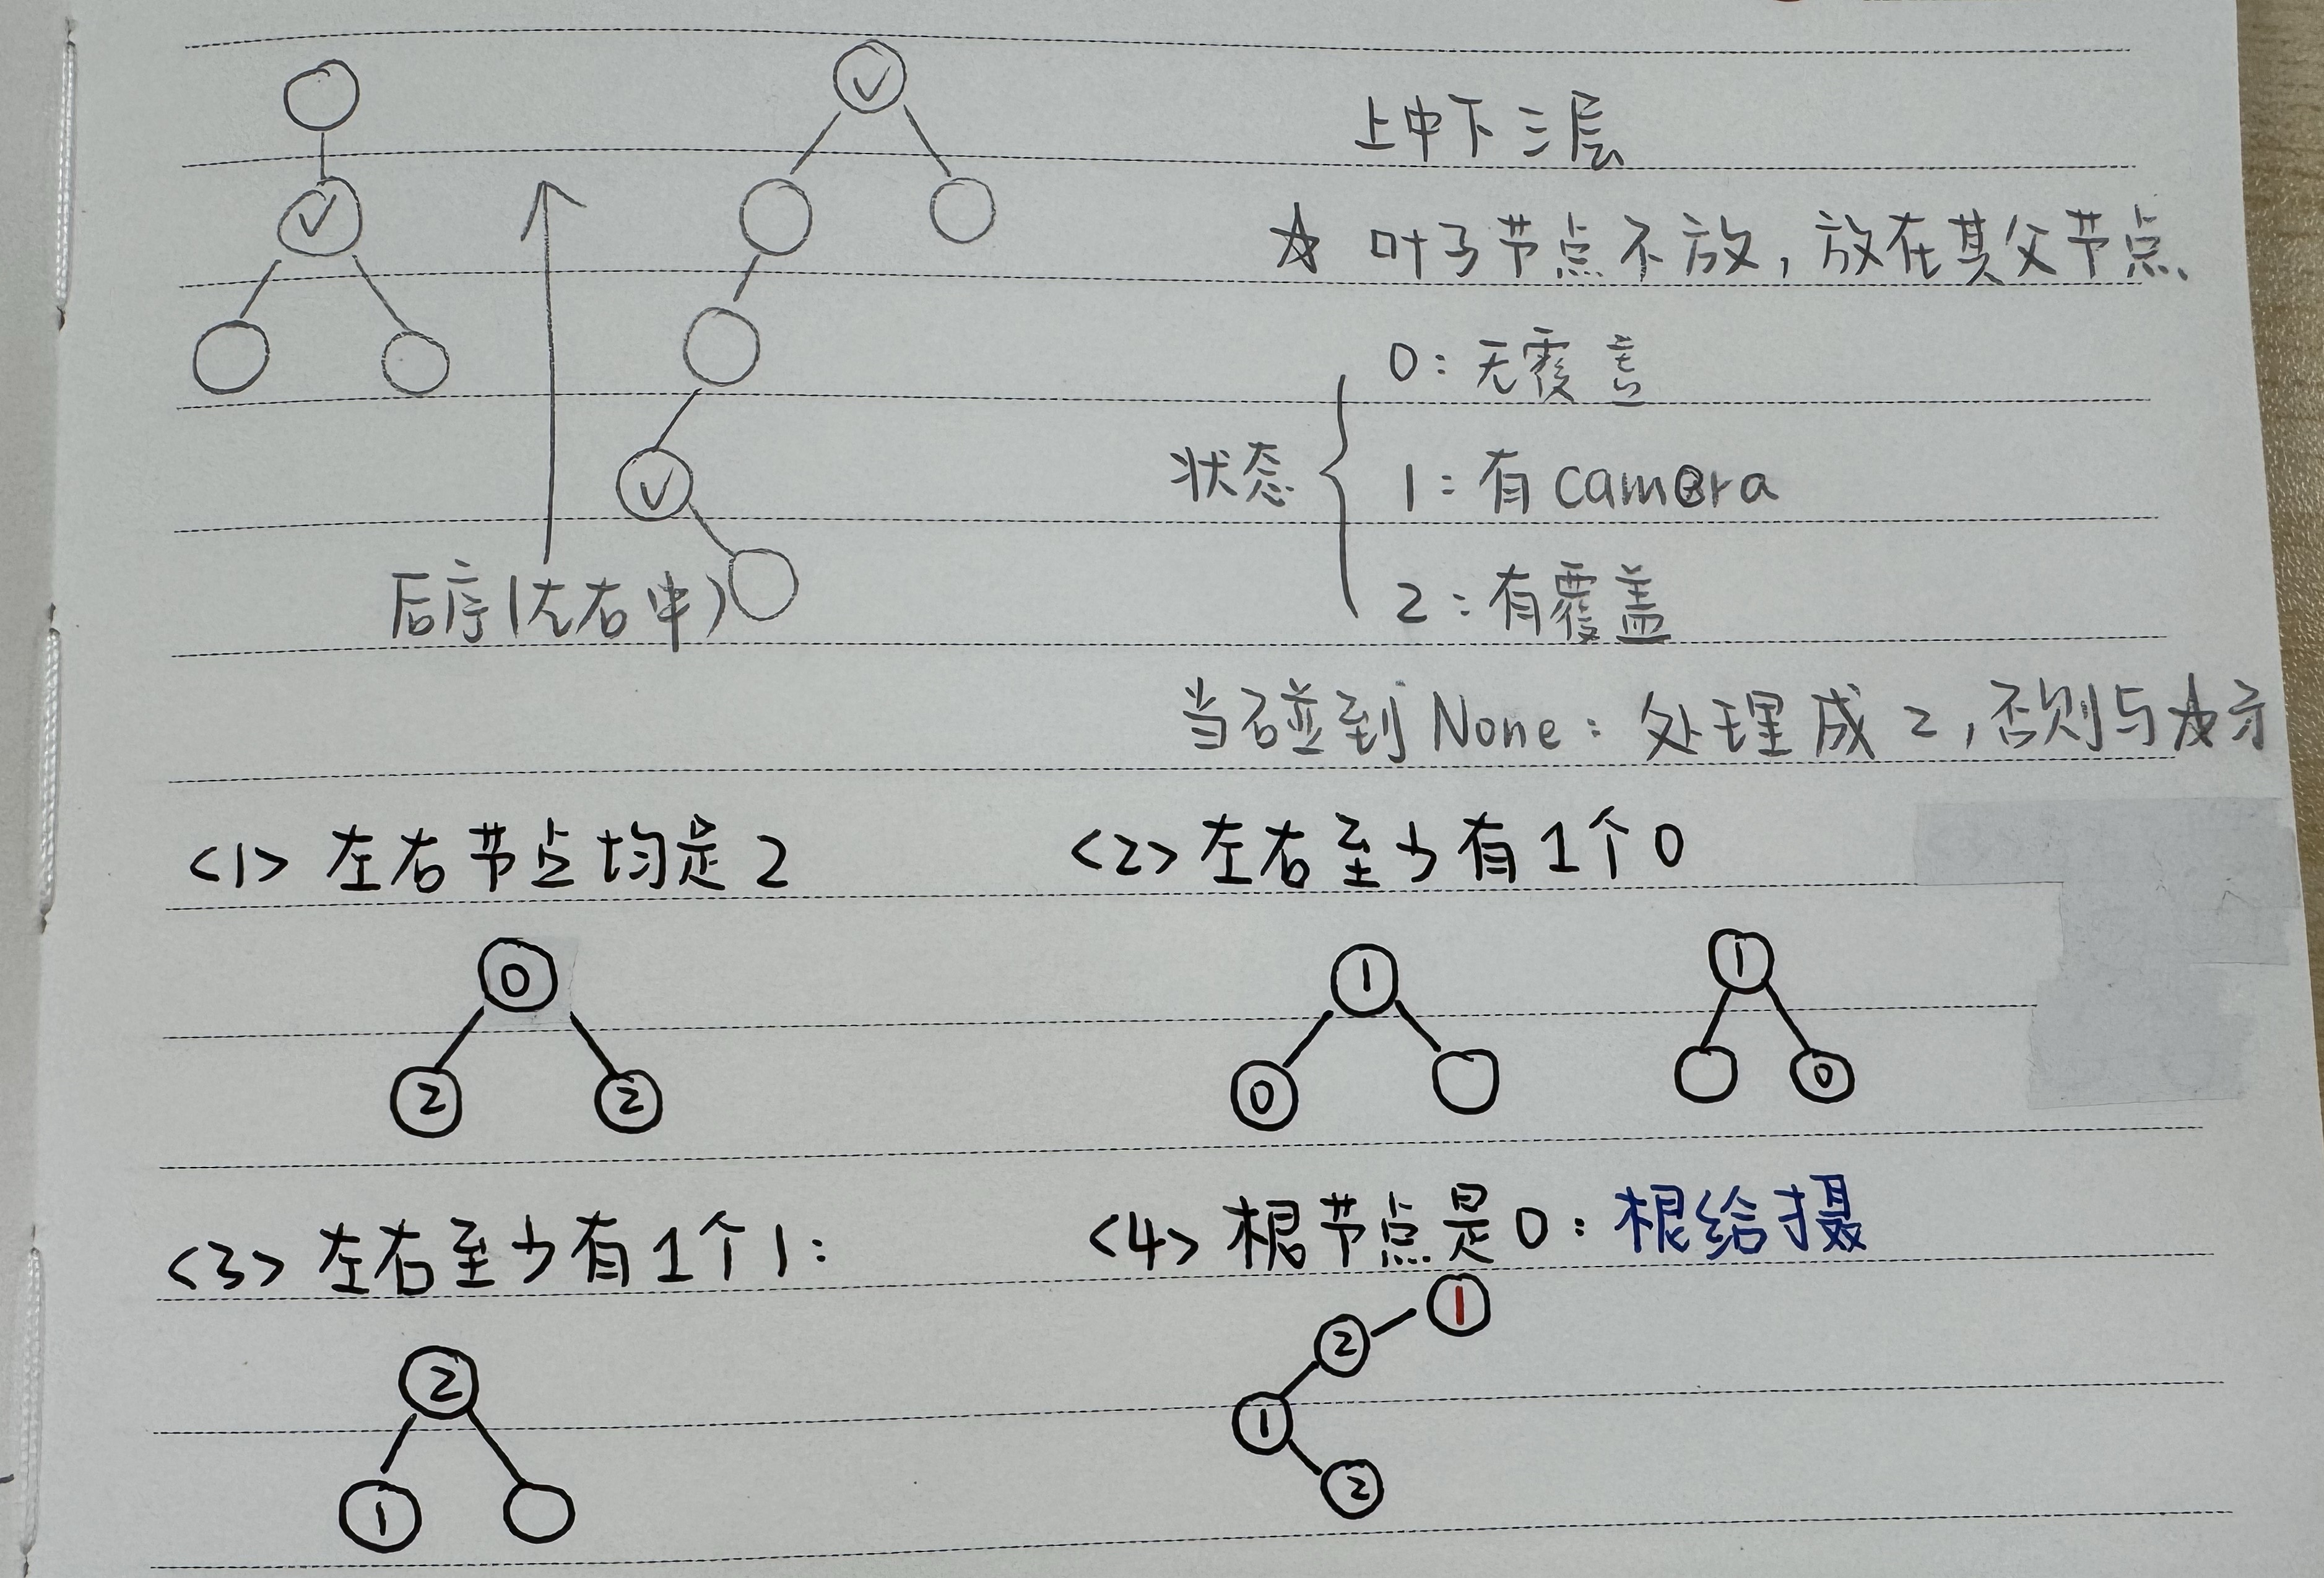 上中下三层
☆ 叶子节点不放，放在其父节点
状态
0：无覆盖
1：有camera
2：有覆盖
后序(左右中)
当碰到None：处理成2，否则与☆矛
<1> 左右节点均是2
<2> 左右至少有1个0
0
2 2
1
0
1
0
<3> 左右至少有1个1：
<4> 根节点是0：根给摄
2
1
1
2
1
2